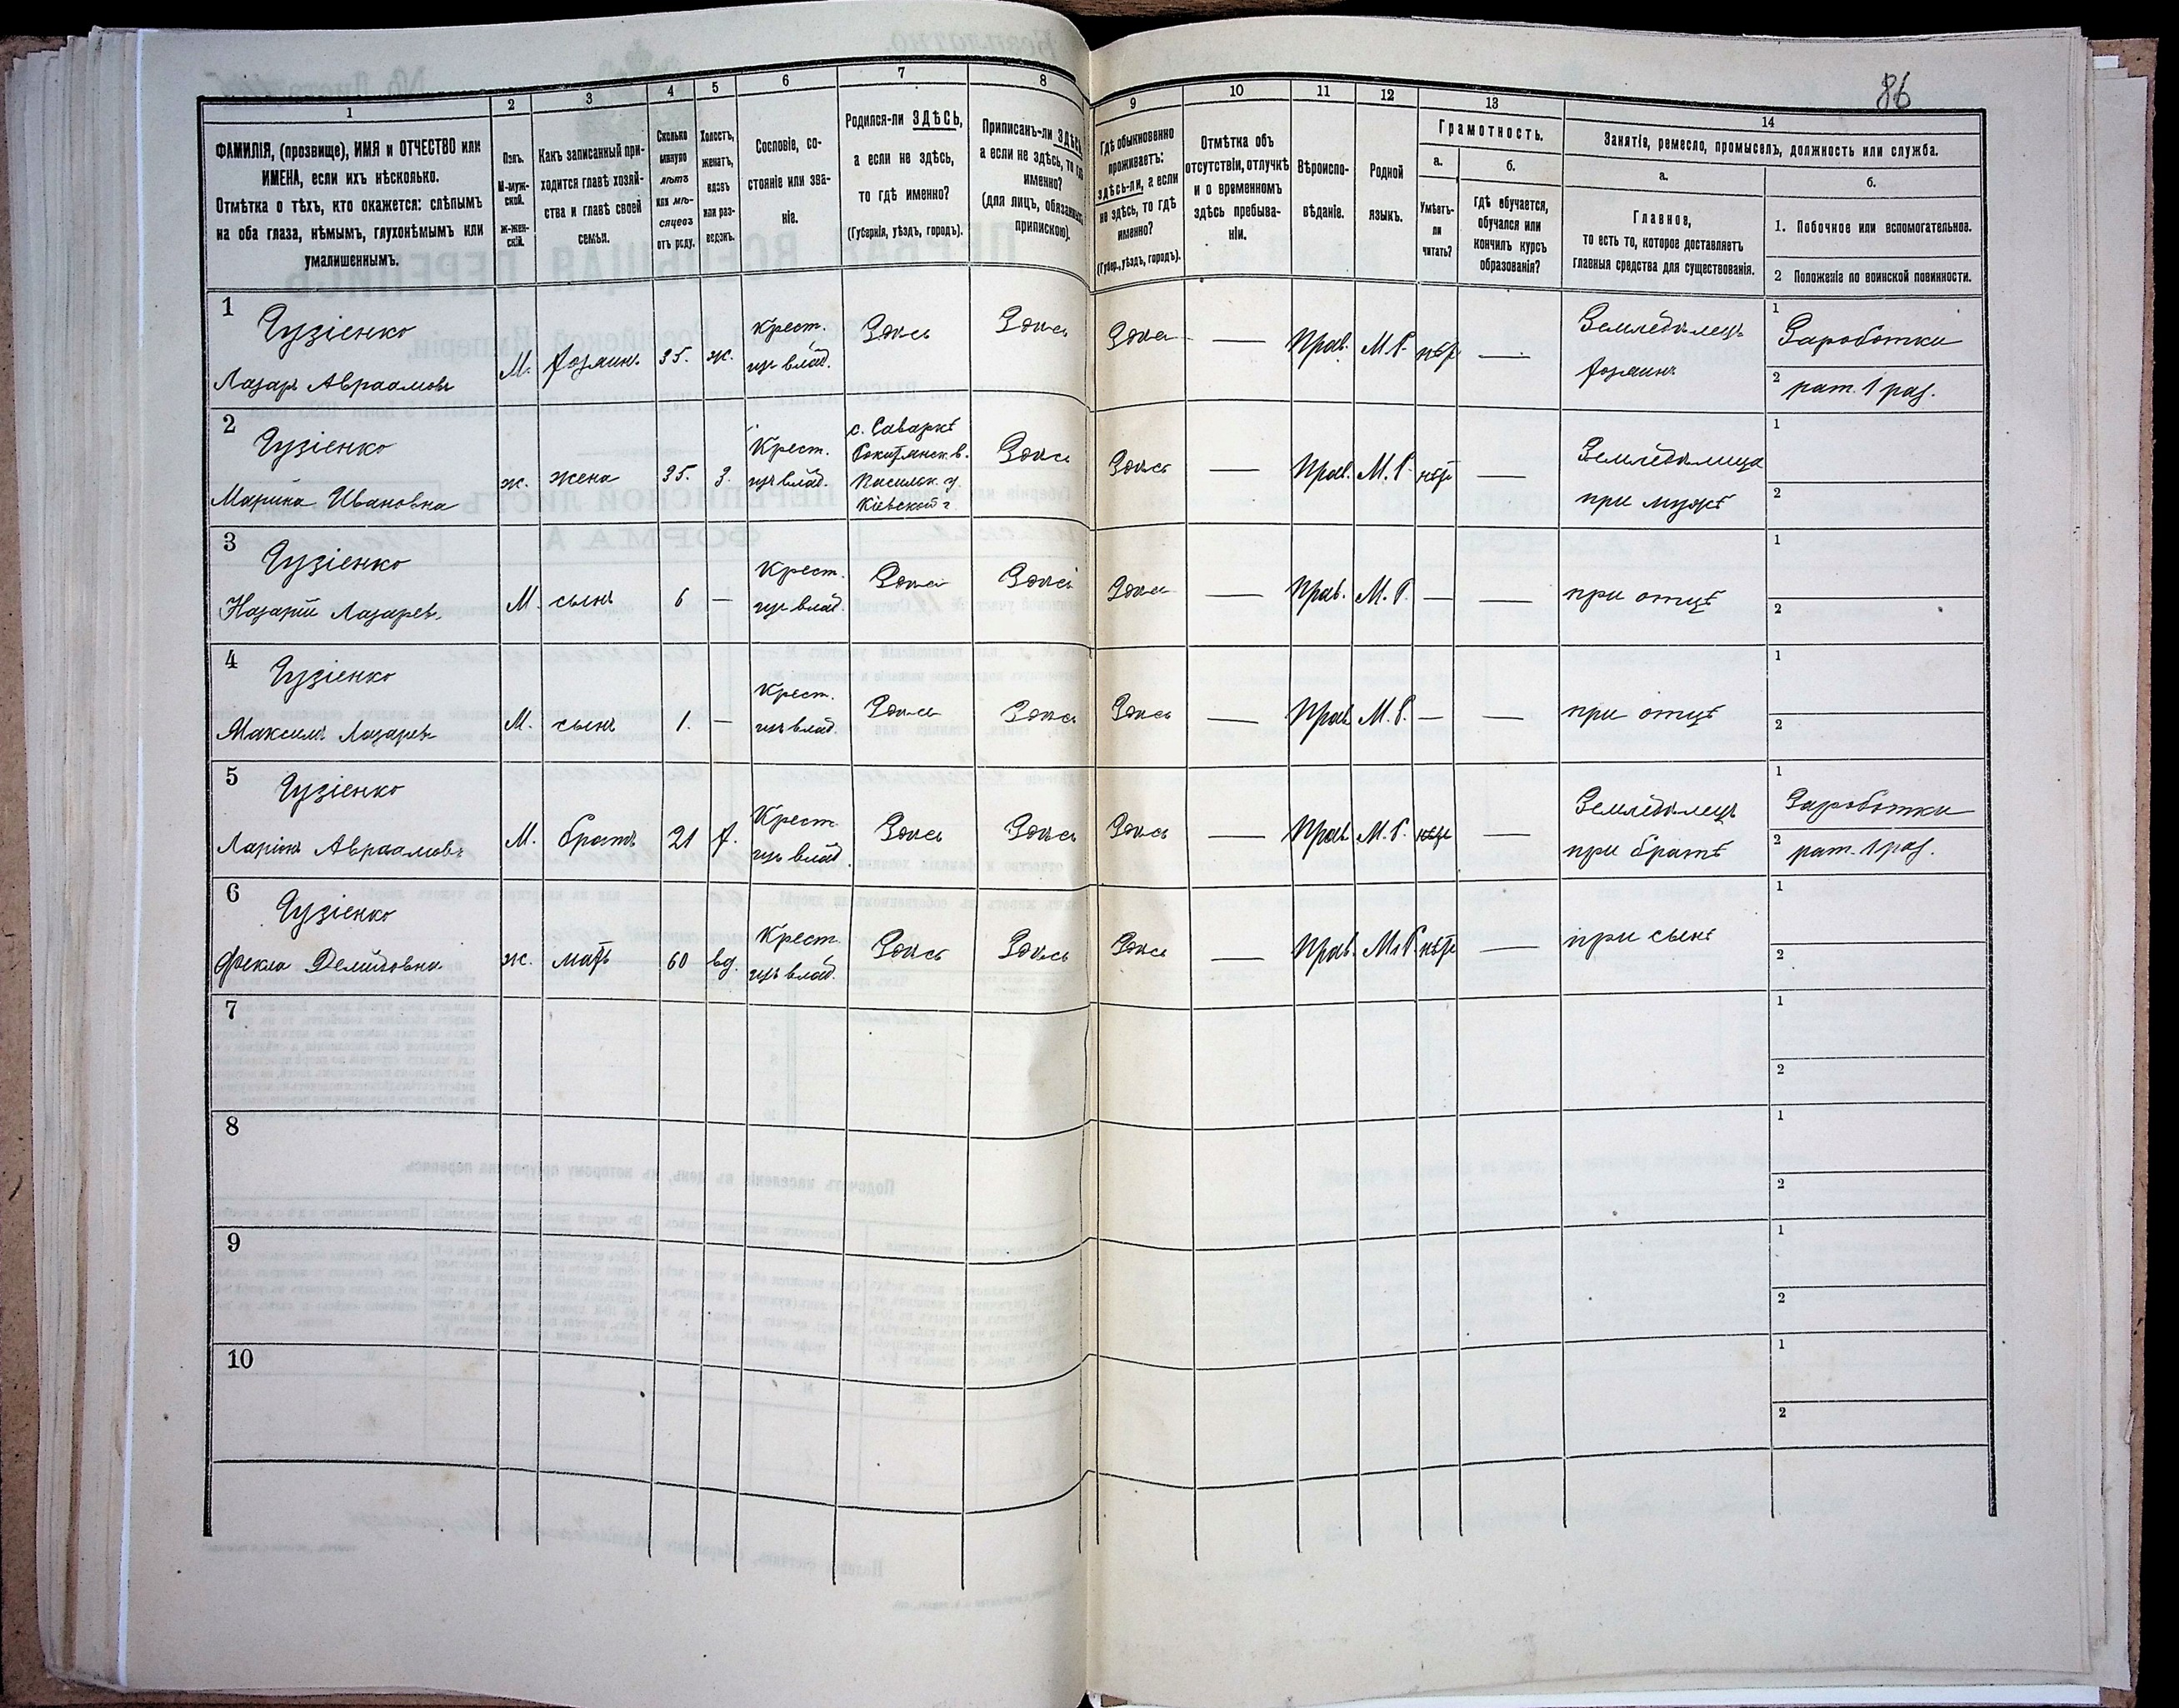 86
1
2
3
4
5
6
7
8
9
10
11
12
13
14
ФАМИЛІЯ, (прозвище), ИМЯ и ОТЧЕСТВО или
ИМЕНА, если ихъ нѣсколько.
Отмѣтка о тѣхъ, кто окажется: слѣпымъ
на оба глаза, нѣмымъ, глухонѣмымъ или
умалишеннымъ.
Полъ.
М-муж-
ской.
Ж-жен-
скій.
Какъ записанный при-
ходится главѣ хозяй-
ства и главѣ своей
семьи.
Сколько
минуло
лѣтъ
или мѣ-
сяцевъ
отъ роду.
Холостъ,
женатъ,
вдовъ
или раз-
веденъ.
Сословіе, со-
стояніе или зва-
ніе.
Родился-ли ЗДѢСЬ,
а если не здѣсь,
то гдѣ именно?
(Губернія, уѣздъ, городъ).
Приписанъ-ли ЗДѢСЬ,
а если не здѣсь, то гдѣ
именно?
(для лицъ, обязанныхъ
припискою).
Гдѣ обыкновенно
проживаетъ:
здѣсь-ли, а если
не здѣсь, то гдѣ
именно?
(Губер., уѣздъ, городъ).
Отмѣтка объ
отсутствіи, отлучкѣ
и о временномъ
здѣсь пребыва-
ніи.
Вѣроиспо-
вѣданіе.
Родной
языкъ.
Грамотность.
а.
Умѣетъ-
ли
читать?
б.
гдѣ обучается,
обучался или
кончилъ курсъ
образованія?
Занятіе, ремесло, промыселъ, должность или служба.
а.
Главное,
то есть то, которое доставляетъ
главныя средства для существованія.
б.
1. Побочное или вспомогательное.
2 Положеніе по воинской повинности.
1
Гузіенко
Лазарь Авраамовъ
М. хозяинъ 35. ж.
Крест.
изъ влад.
Здѣсь Здѣсь Здѣсь — Прав. М.Р. нѣтъ —
Земледѣлецъ
хозяинъ
1 Заработки
2 рат. 1 раз.
2
Гузіенко
Марина Ивановна
ж. жена 35. З.
Крест.
изъ влад.
с. Саваркѣ
Рокитянск. в.
Васильк. у.
Кіевской г.
Здѣсь Здѣсь — Прав. М.Р. нѣтъ —
Земледѣлица
при мужѣ
1
2
3
Гузіенко
Назарій Лазаревъ
М. сынъ 6 —
Крест.
изъ влад.
Здѣсь Здѣсь Здѣсь — Прав. М.Р. — — при отцѣ
1
2
4
Гузіенко
Максимъ Лазаревъ
М. сынъ 1. —
Крест.
изъ влад.
Здѣсь Здѣсь Здѣсь — Прав. М.Р. — — при отцѣ
1
2
5
Гузіенко
Ларіонъ Авраамовъ
М. братъ 21 х.
Крест.
изъ влад.
Здѣсь Здѣсь Здѣсь — Прав. М.Р. нѣтъ —
Земледѣлецъ
при братѣ
1 Заработки
2 рат. 1 раз.
6
Гузіенко
Фекла Демидовна
ж. мать 60 вд.
Крест.
изъ влад.
Здѣсь Здѣсь Здѣсь — Прав. М.Р. нѣтъ — при сынѣ
1
2
7
1
2
8
1
2
9
1
2
10
1
2